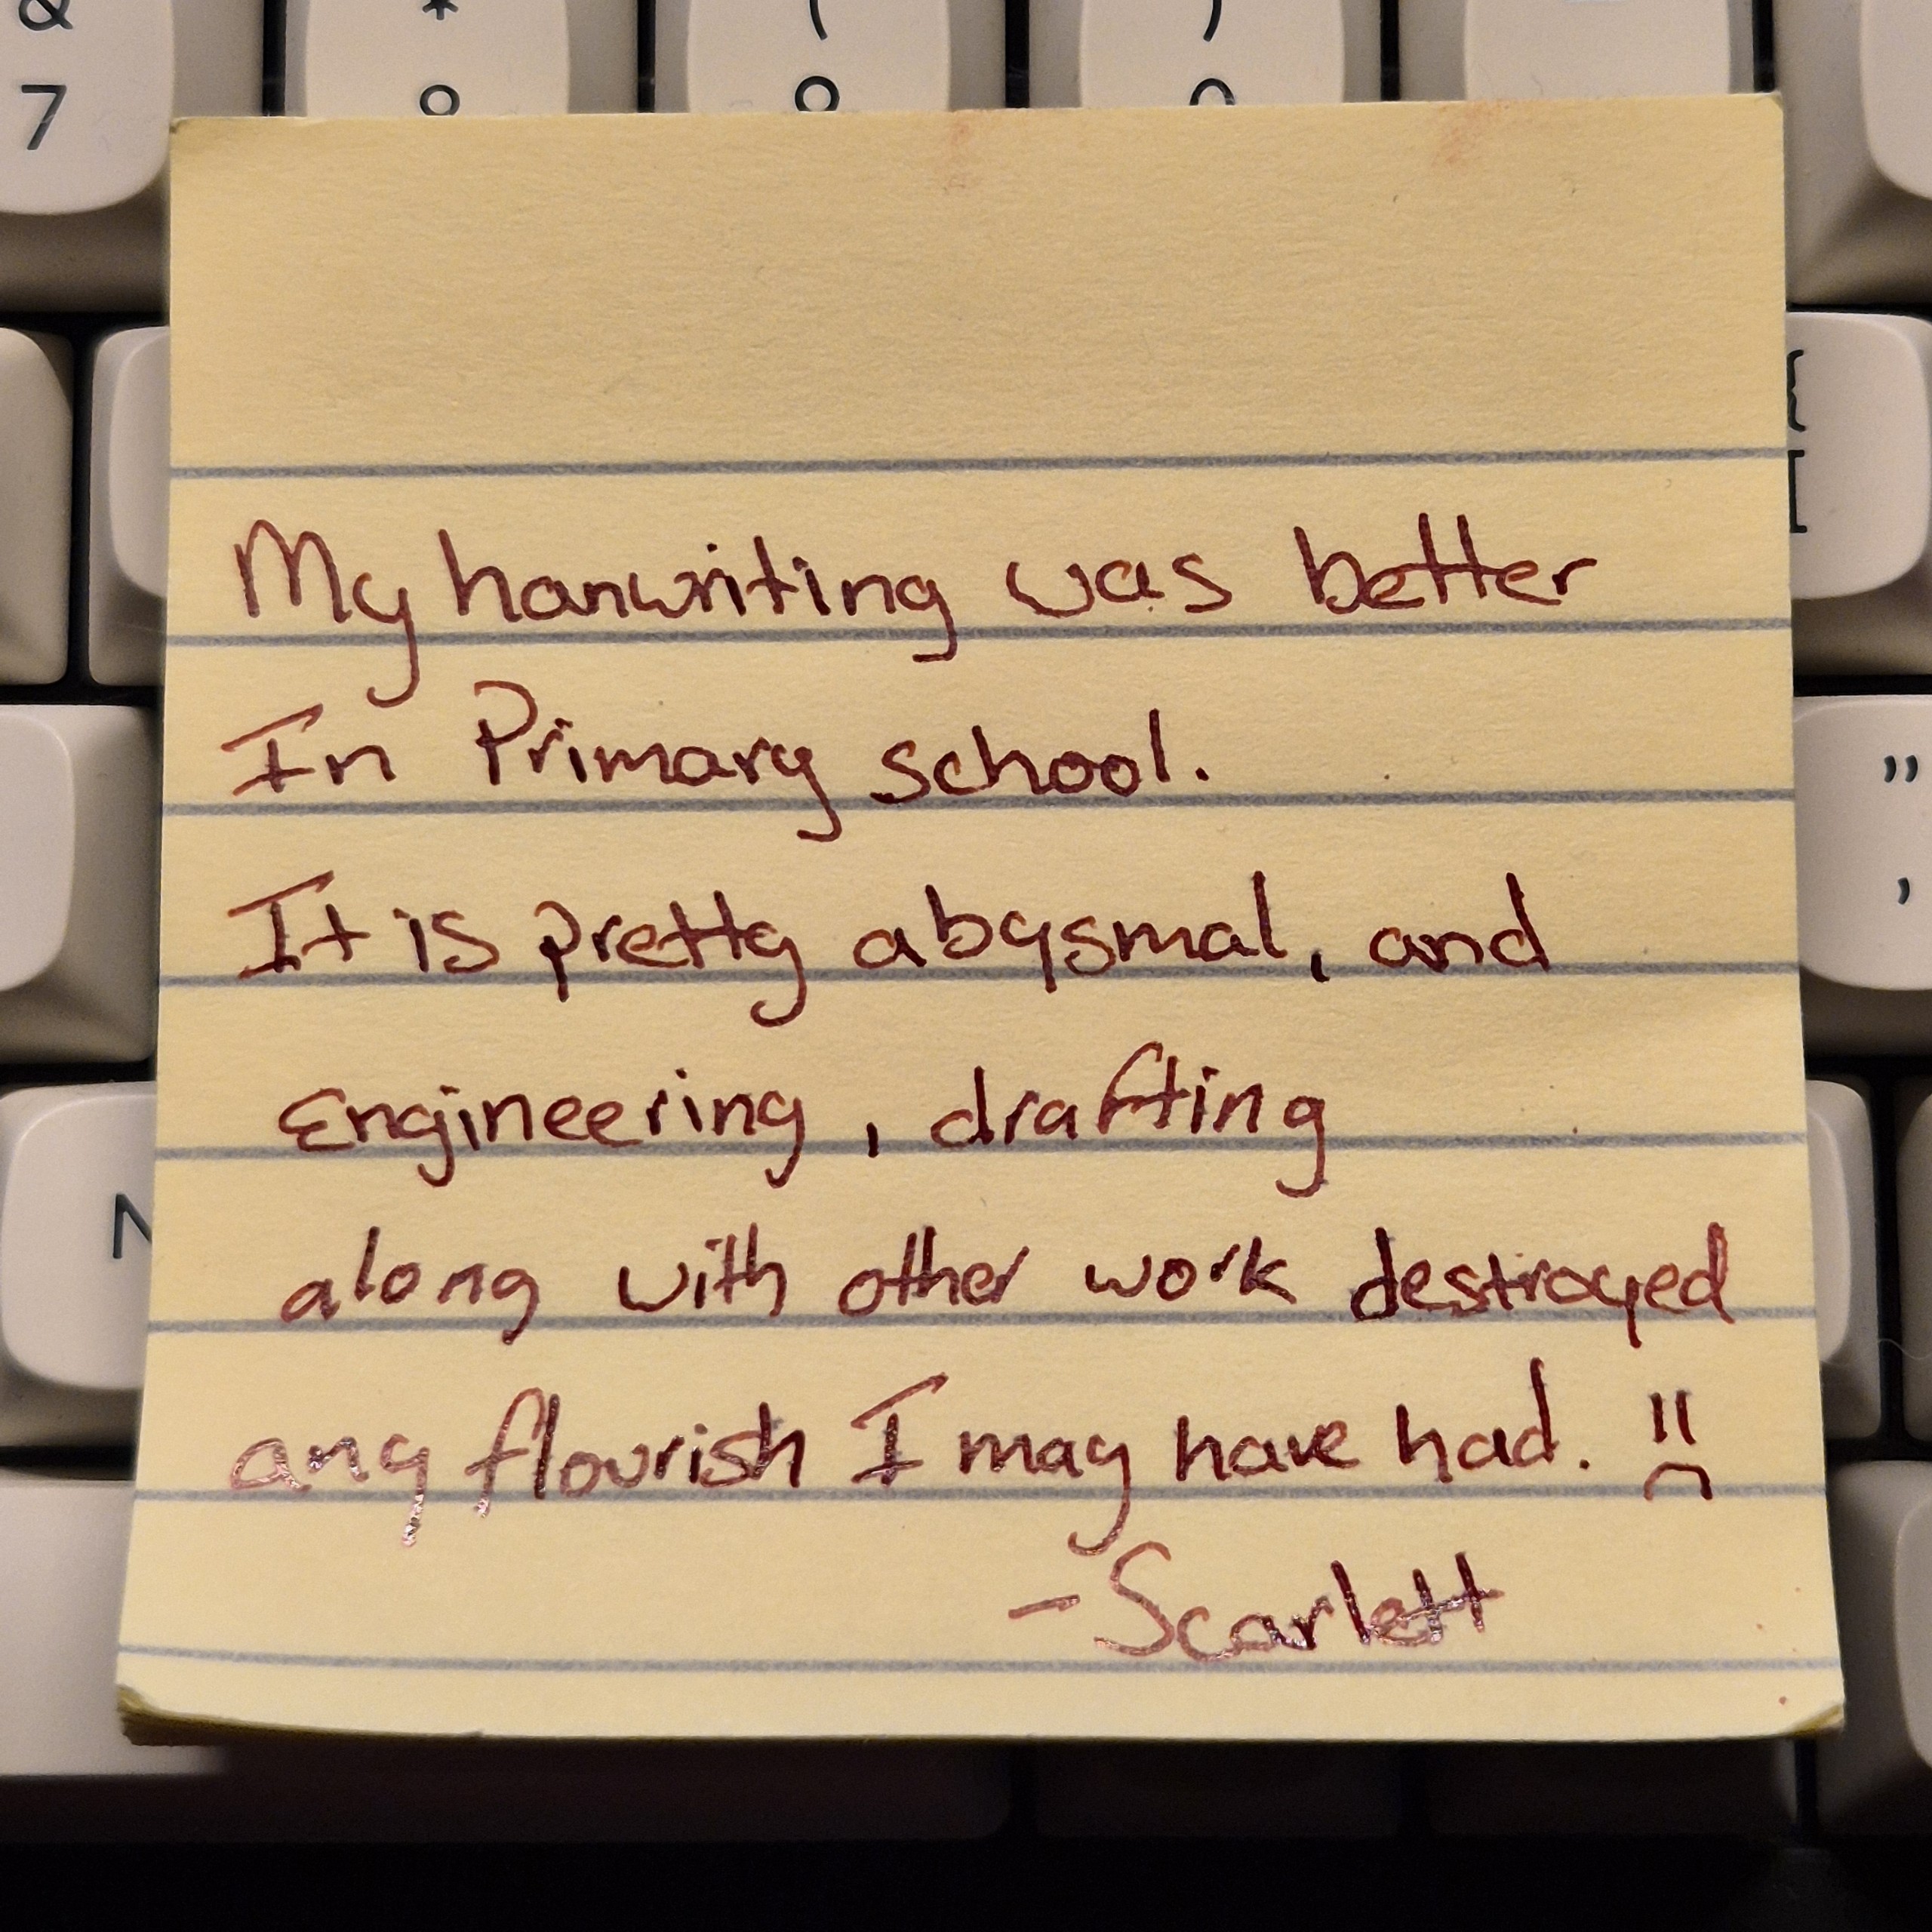 & * ( )
7 8 9 0
{
[
My hanwriting was better
In Primary school.
"
'
It is pretty abysmal, and
Engineering, drafting
N
along with other work destroyed
any flourish I may have had. :(
-Scarlett